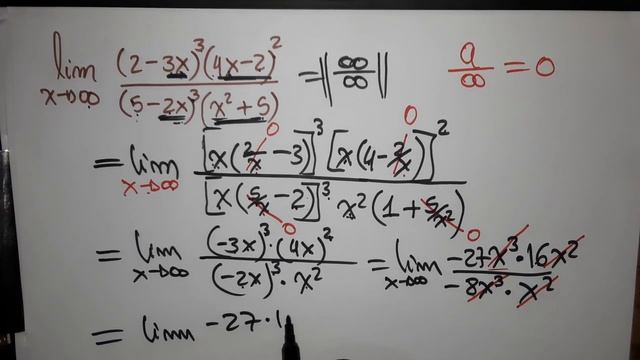 lim x→∞ (2-3x)³(4x-2)² / (5-2x)³(x²+5) = ||∞/∞|| a/∞ = 0
= lim x→∞ [x(2/x-3)]³ [x(4-2/x)]² / [x(5/x-2)]³ x²(1+5/x²) 0 0 0 0
= lim x→∞ (-3x)³·(4x)² / (-2x)³·x² = lim x→∞ -27x³·16x² / -8x³·x²
= lim -27·1